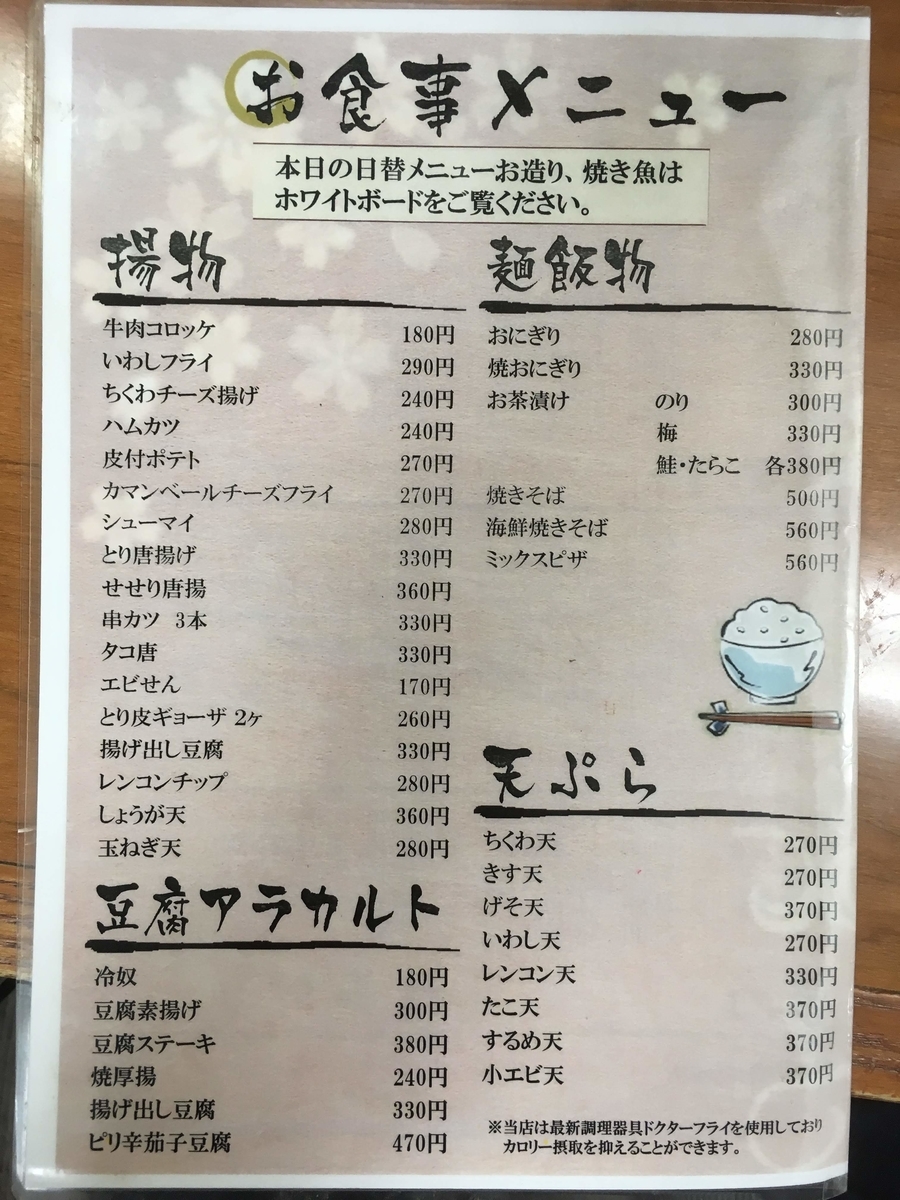 お食事メニュー
本日の日替メニューお造り、焼き魚は
ホワイトボードをご覧ください。
揚物
牛肉コロッケ 180円
いわしフライ 290円
ちくわチーズ揚げ 240円
ハムカツ 240円
皮付ポテト 270円
カマンベールチーズフライ 270円
シューマイ 280円
とり唐揚げ 330円
せせり唐揚 360円
串カツ 3本 330円
タコ唐 330円
エビせん 170円
とり皮ギョーザ 2ヶ 260円
揚げ出し豆腐 330円
レンコンチップ 280円
しょうが天 360円
玉ねぎ天 280円
豆腐アラカルト
冷奴 180円
豆腐素揚げ 300円
豆腐ステーキ 380円
焼厚揚 240円
揚げ出し豆腐 330円
ピリ辛茄子豆腐 470円
麺飯物
おにぎり 280円
焼おにぎり 330円
お茶漬け のり 300円
梅 330円
鮭・たらこ 各380円
焼きそば 500円
海鮮焼きそば 560円
ミックスピザ 560円
天ぷら
ちくわ天 270円
きす天 270円
げそ天 370円
いわし天 270円
レンコン天 330円
たこ天 370円
するめ天 370円
小エビ天 370円
※当店は最新調理器具ドクターフライを使用しており
カロリー摂取を抑えることができます。